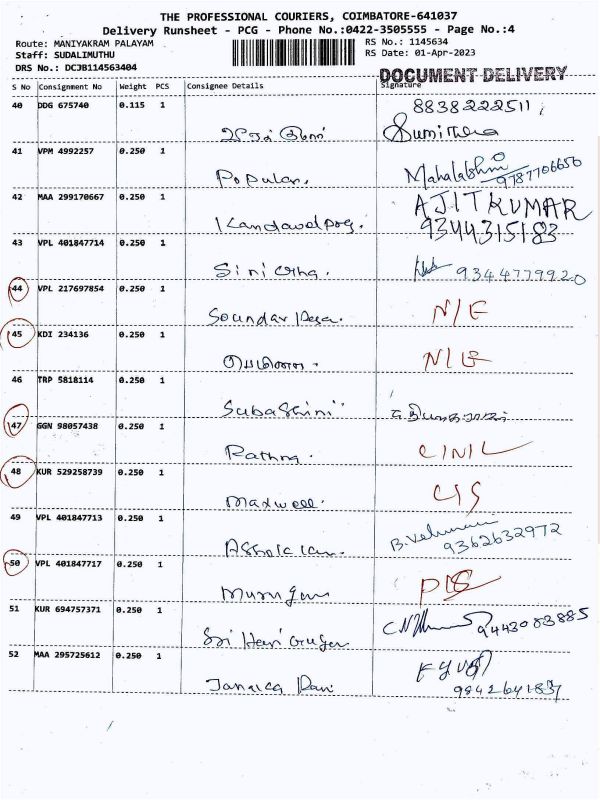 THE PROFESSIONAL COURIERS, COIMBATORE-641037
Delivery Runsheet - PCG - Phone No.:0422-3505555 - Page No.:4
Route: MANIYAKRAM PALAYAM RS No.: 1145634
Staff: SUDALIMUTHU RS Date: 01-Apr-2023
DRS No.: DCJB114563404
DOCUMENT DELIVERY
S No Consignment No Weight PCS Consignee Details Signature
40 DDG 675740 0.115 1 8838222511
Sumithra
41 VPM 4992257 0.250 1
Popular. Mahalakshmi 9787706656
42 MAA 299170667 0.250 1 AJITKUMAR
9344315183
43 VPL 401847714 0.250 1
9344779920
44 VPL 217697854 0.250 1
N/E
45 KDI 234136 0.250 1
N/E
46 TRP 5818114 0.250 1
Subashini
47 GGN 98057438 0.250 1
Rathna
48 KUR 529258739 0.250 1
Maxwell.
49 VPL 401847713 0.250 1
9362632972
50 VPL 401847717 0.250 1
Murugan
51 KUR 694757371 0.250 1
Sri Hari 9443083885
52 MAA 295725612 0.250 1
Janaka 9842641837